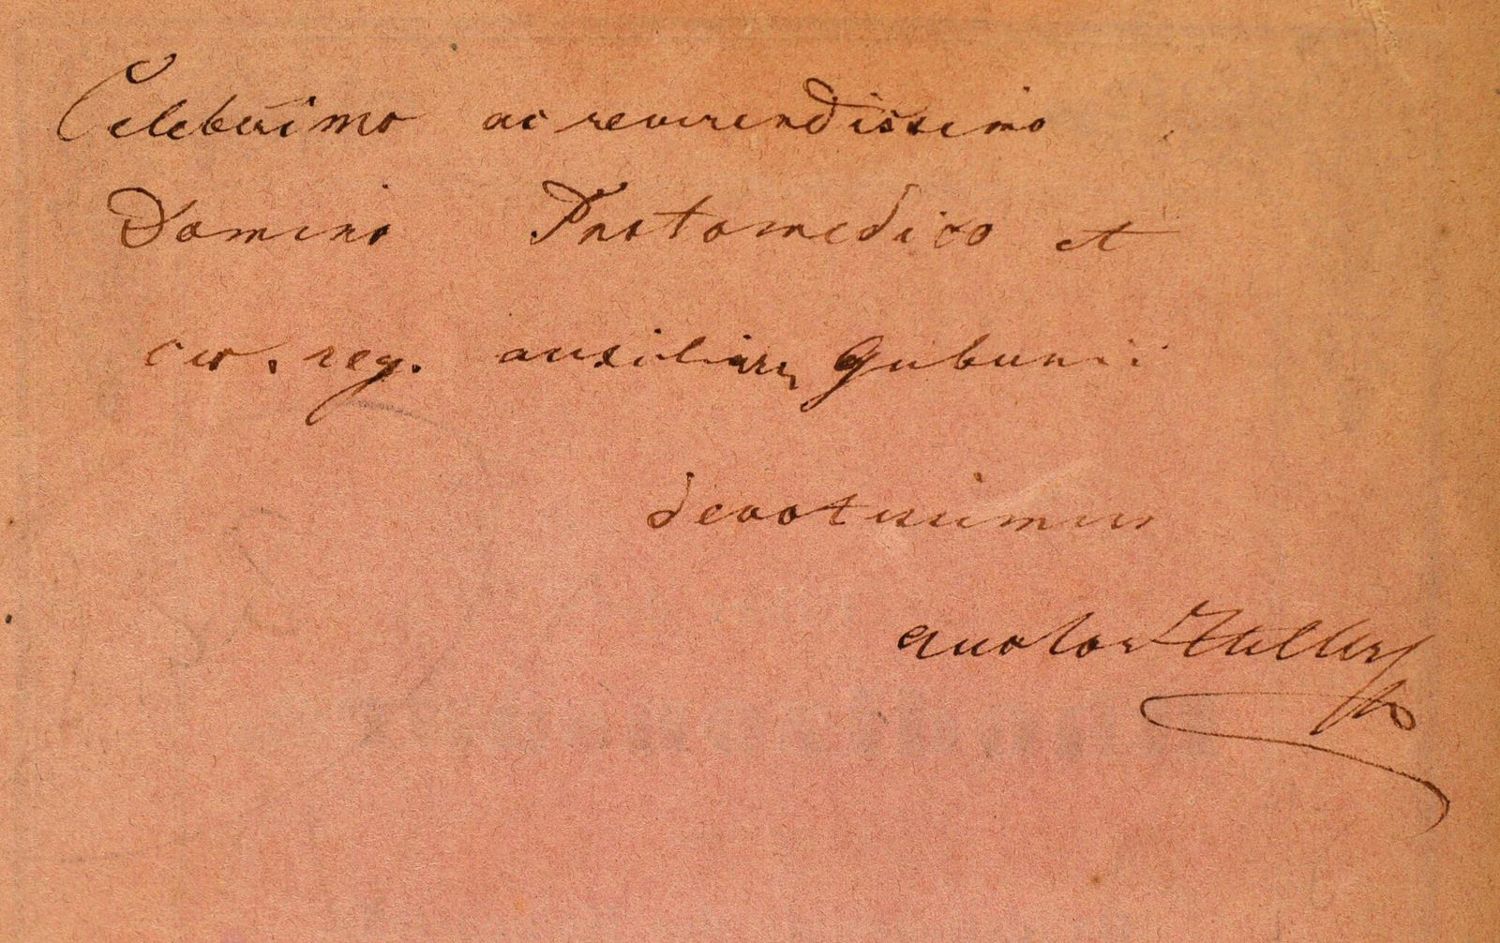 Celeberrimo ac reverendissimo
Domino Protomedico et
cæs. reg. auxiliari Gubernii
devotissimus
auctor